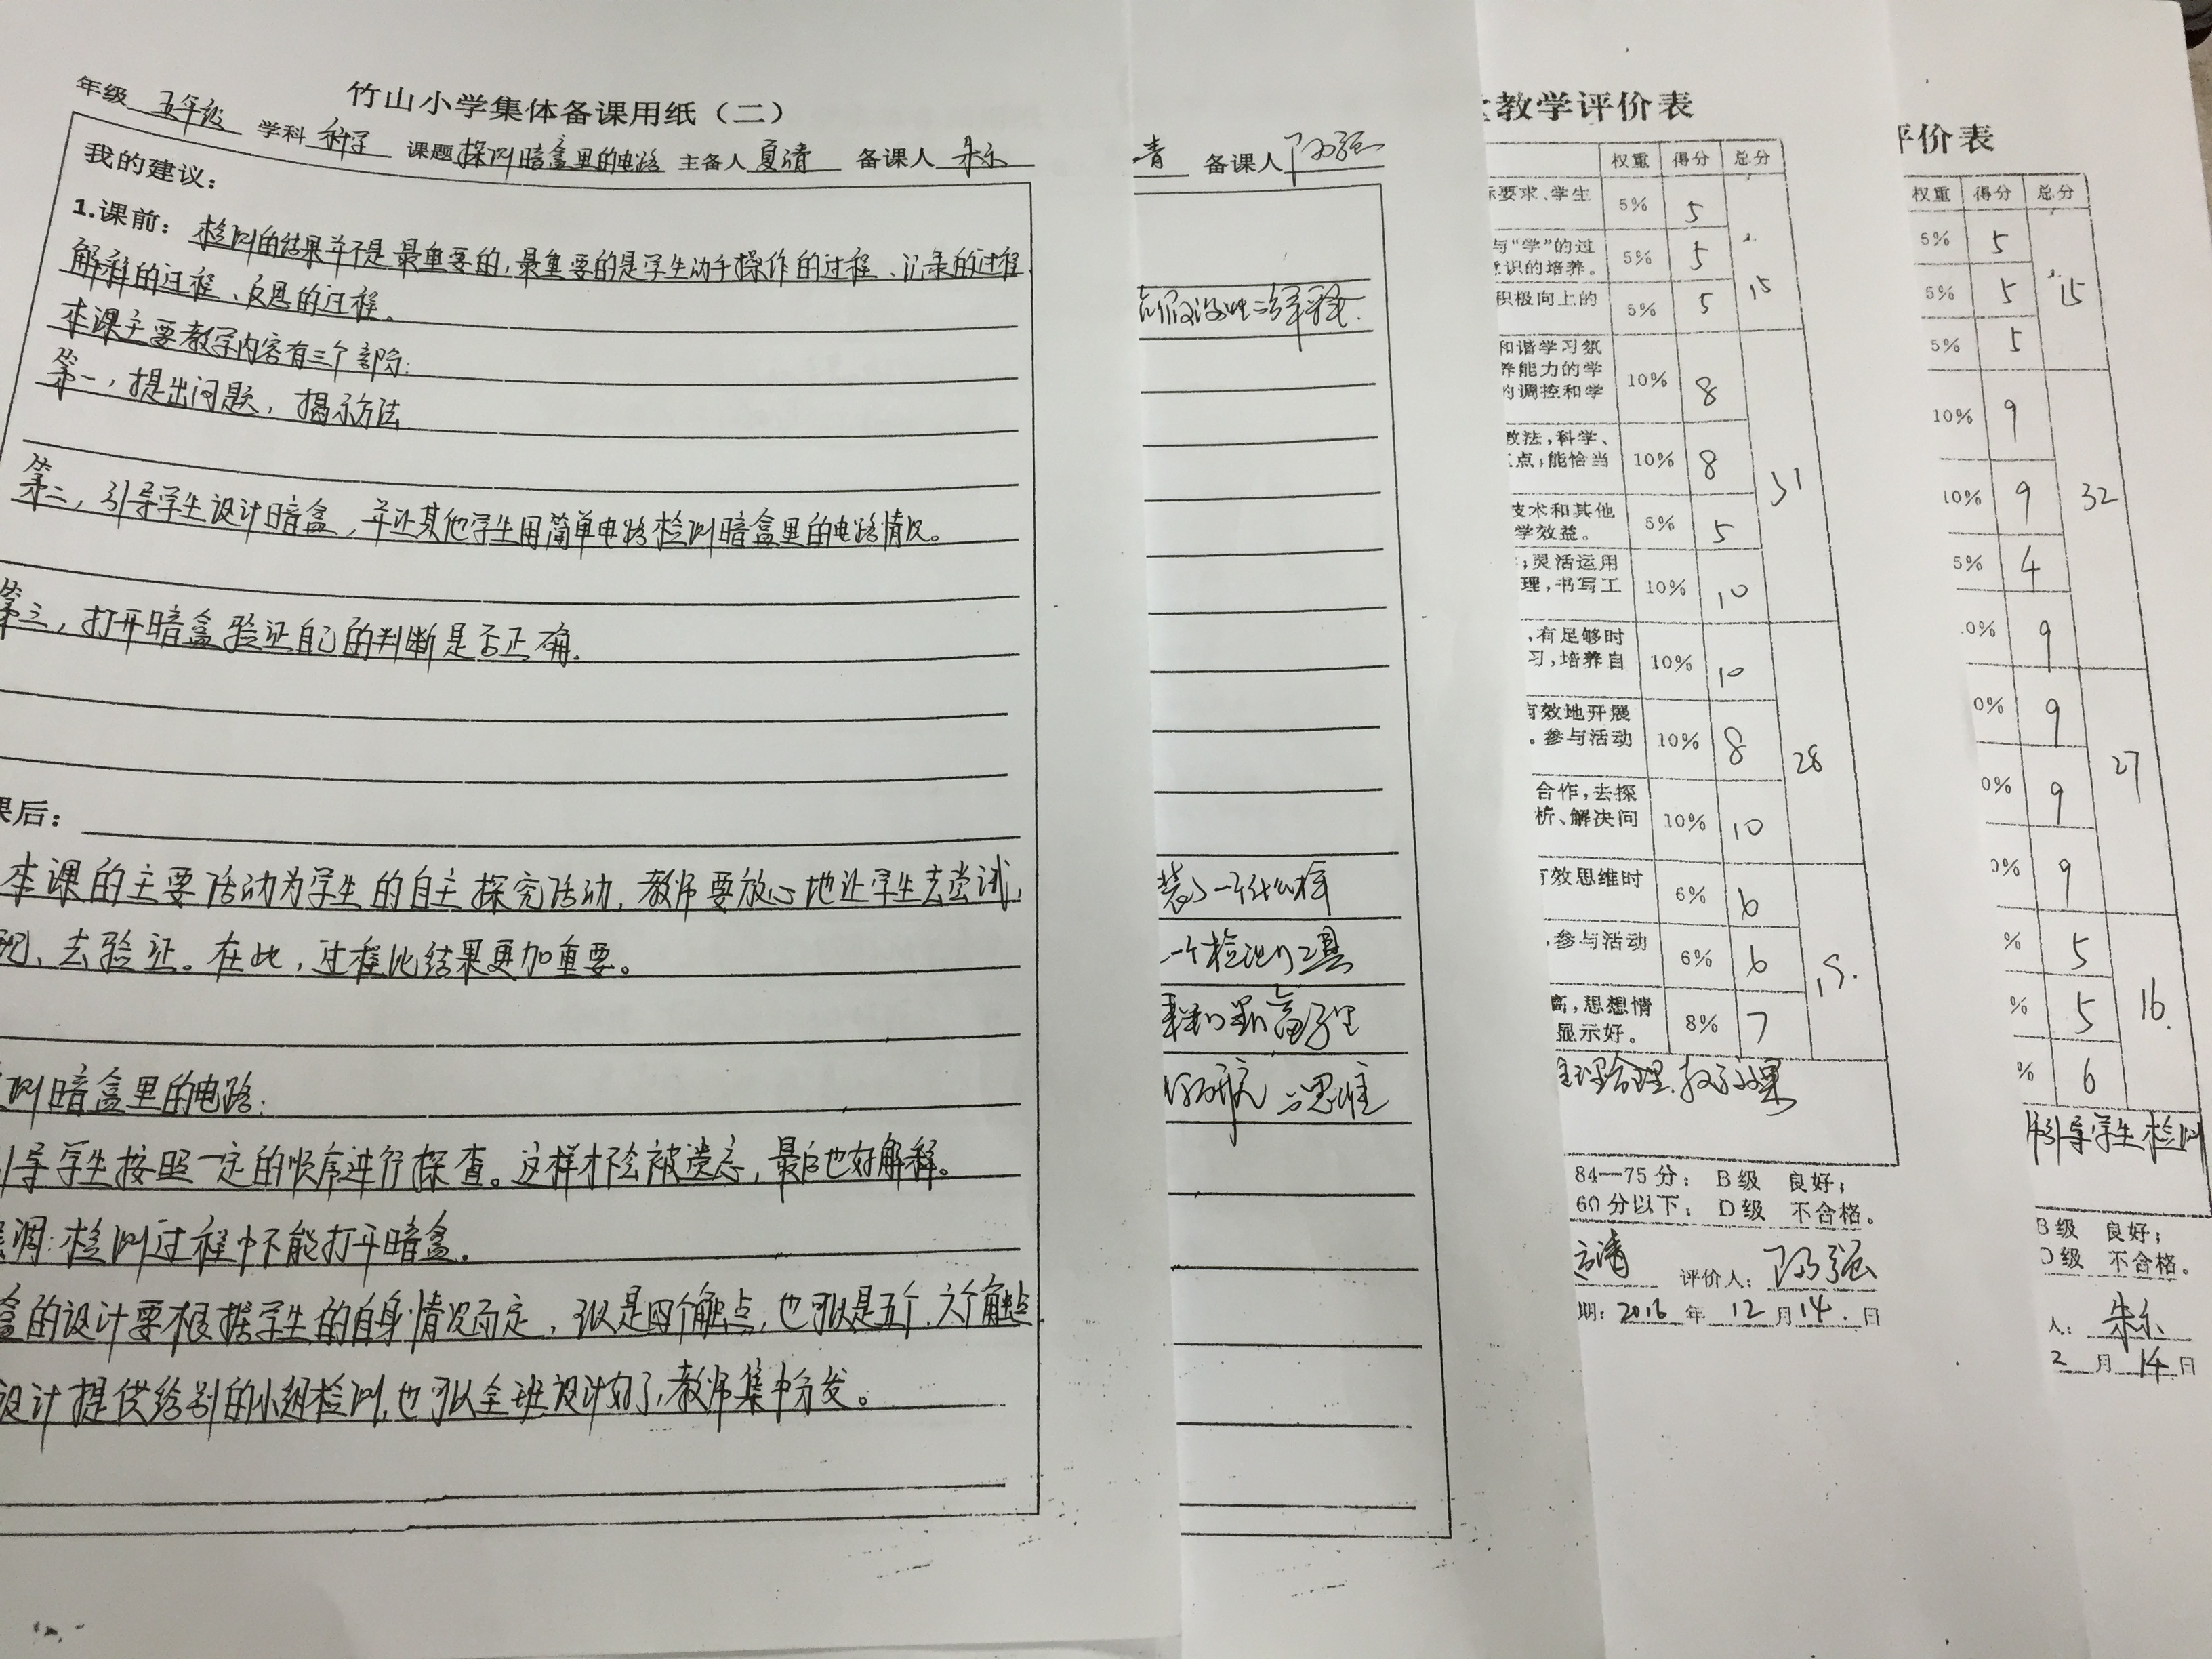 竹山小学集体备课用纸（二）
年级 五年级 学科 科学 课题 探测暗盒里的电路 主备人 夏清 备课人 朱乐
我的建议：
1.课前：检测的结果并不是最重要的，最重要的是学生动手操作的过程、记录的过程、
解释的过程、反思的过程。
本课主要教学内容有三个部分：
第一，提出问题，揭示方法
第二，引导学生设计暗盒，并让其他学生用简单电路检测暗盒里的电路情况。
第三，打开暗盒验证自己的判断是否正确。
课后：
本课的主要活动为学生的自主探究活动，教师要放心地让学生去尝试，
现、去验证。在此，过程比结果更加重要。
测暗盒里的电路：
引导学生按照一定的顺序进行探查。这样才不会被遗忘，最后也好解释。
强调：检测过程中不能打开暗盒。
盒的设计要根据学生的自身情况而定，可以是四个触点，也可以是五个、六个触点
设计提供给别的小组检测，也可以全班设计好了，教师集中分发。
青 备课人
装了一个什么样
一个检测工具
与思维
教学评价表
权重 得分 总分
示要求、学生 5% 5
与“学”的过
意识的培养。 5% 5 15
积极向上的 5% 5
和谐学习氛
养能力的学 10% 8
的调控和学
教法，科学、
点；能恰当 10% 8 31
技术和其他
学效益。 5% 5
；灵活运用
理，书写工 10% 10
，有足够时
习，培养自 10% 10
有效地开展
。参与活动 10% 8 28
合作，去探
析、解决问 10% 10
有效思维时 6% 6
，参与活动 6% 6 19.
高，思想情
显示好。 8% 7
合理，教学效果
84—75分： B级 良好；
60分以下： D级 不合格。
清 评价人：
期：2016 年 12 月 14. 日
评价表
权重 得分 总分
5% 5
5% 5 15
5% 5
10% 9
10% 9 32
5% 4
.0% 9
0% 9
0% 9 27
0% 9
% 5
% 5 16.
% 6
引导学生检测
B级 良好；
D级 不合格。
人： 朱乐
2 月 14 日